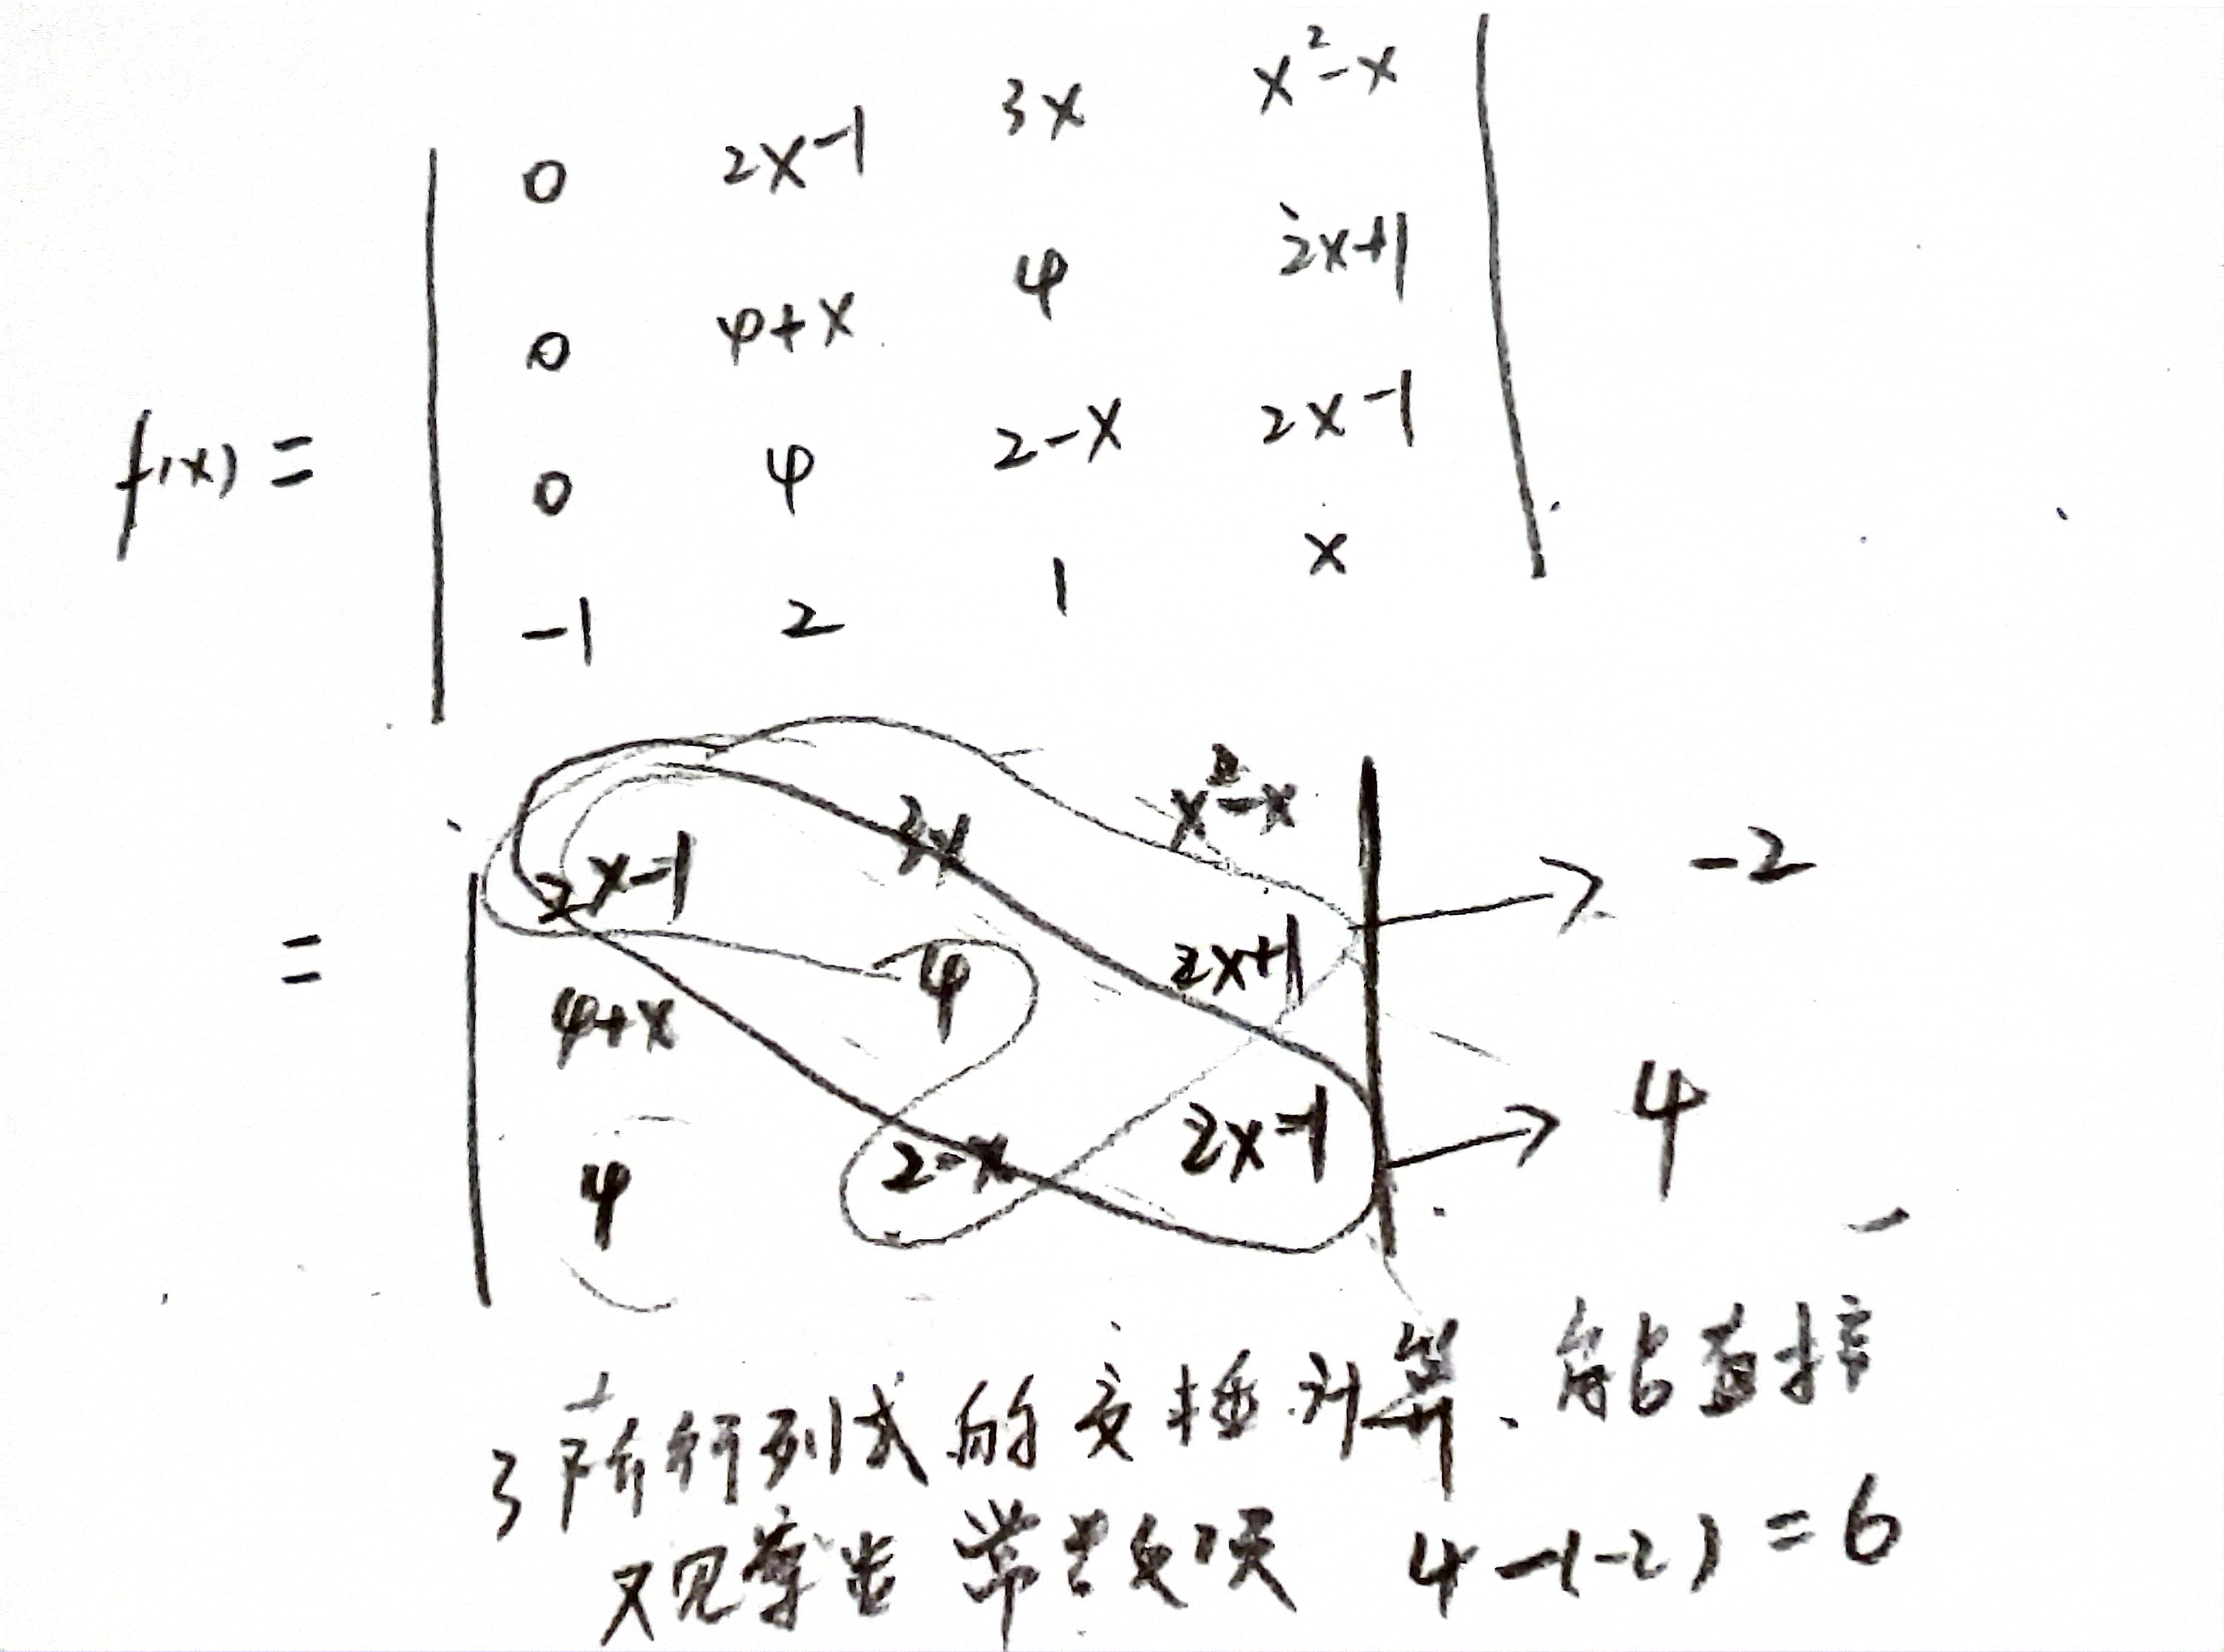 0 2x-1 3x x²-x
0 4+x 4 2x+1
f(x)= 0 4 2-x 2x-1
-1 2 1 x
2x-1 3x x²-x → -2
= 4+x 4 2x+1
4 2-x 2x-1 → 4
3阶行列式的交换计算、能直接
观察出 常数项 4-(-2)=6